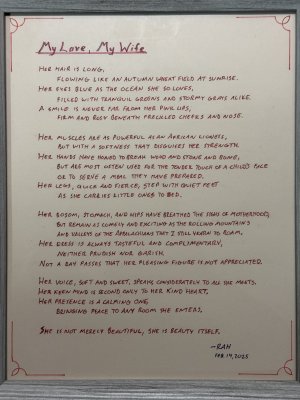 My Love, My Wife
Her hair is long,
flowing like an autumn wheat field at sunrise.
Her eyes blue as the ocean she so loves,
filled with tranquil greens and stormy grays alike.
A smile is never far from her pink lips,
firm and rosy beneath freckled cheeks and nose.
Her muscles are as powerful as an African lioness,
but with a softness that disguises her strength.
Her hands have honed to break wood and stone and bone,
but are most often used for the tender touch of a child's face
or to serve a meal they have prepared.
Her legs, quick and fierce, step with quiet feet
as she carries little ones to bed.
Her bosom, stomach, and hips have breathed the signs of motherhood,
but remain as comely and exciting as the rolling mountains
and valleys of the Appalachians that I still yearn to roam.
Her dress is always tasteful and complimentary,
neither prudish nor garish.
Not a day passes that her pleasing figure is not appreciated.
Her voice, soft and sweet, speaks considerately to all she meets.
Her keen mind is second only to her kind heart.
Her presence is a calming one
bringing peace to any room she enters.
She is not merely beautiful, she is beauty itself.
-RAH
Feb. 14, 2025